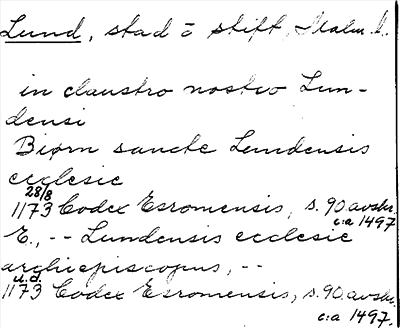 Lund, stad o stift, Malm. l.
in claustro nostro Lun-
densi
Biørn sancte Lundensis
ecclesie
28/8
1173 Codex Esromensis, s. 90 avskr.
c:a 1497
E., -- Lundensis ecclesie
archiepiscopus, --
u.d.
1173 Codex Esromensis, s. 90 avskr.
c:a 1497.